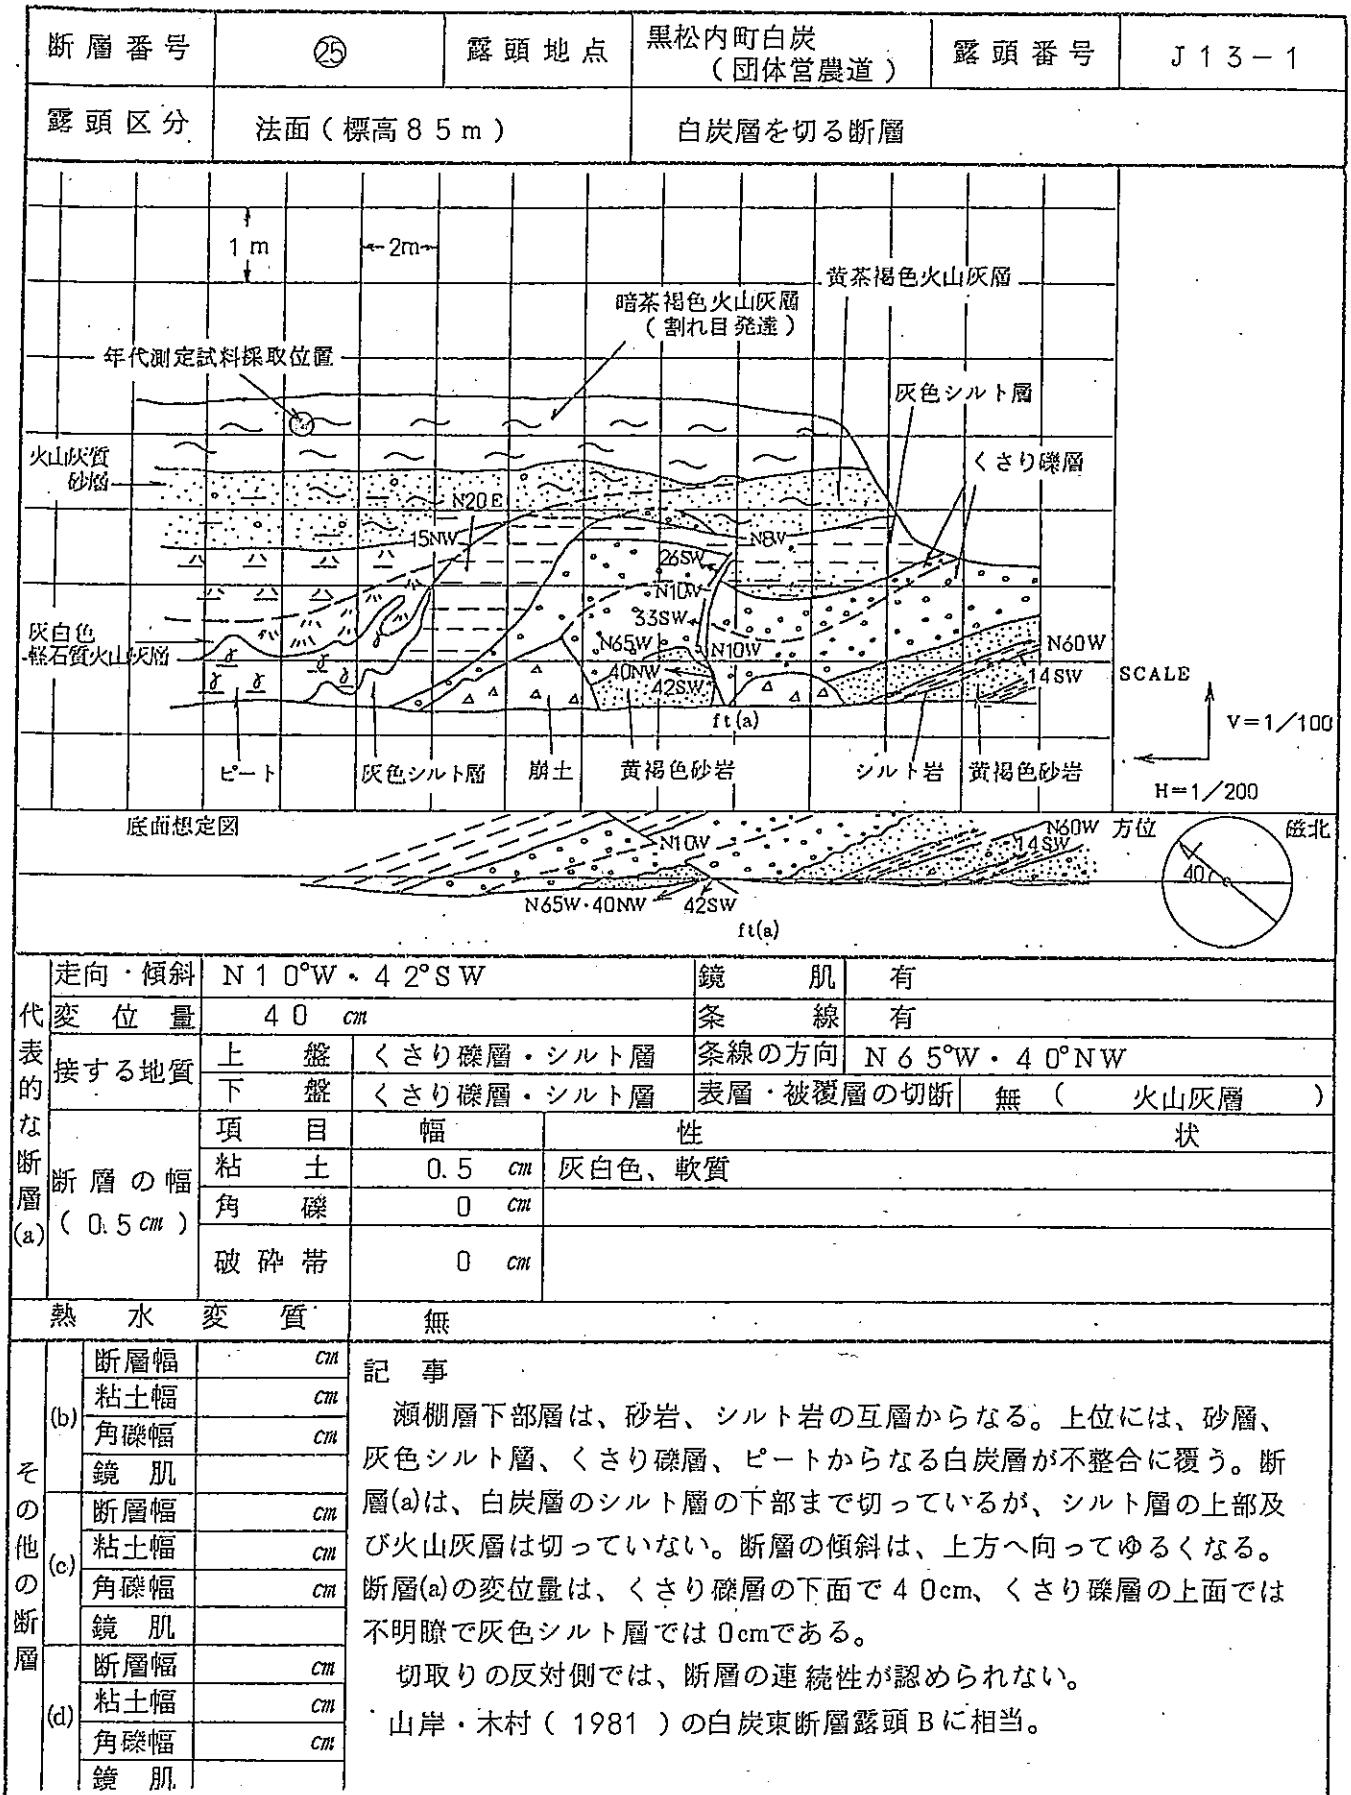 断層番号 ㉕ 露頭地点 黒松内町白炭 露頭番号 J13-1
(団体営農道)
露頭区分 法面(標高85m) 白炭層を切る断層
1m
2m
黄茶褐色火山灰層
暗茶褐色火山灰層
(割れ目発達)
年代測定試料採取位置
灰色シルト層
火山灰質
砂層
くさり礫層
N20E
15NW
N8W
26SW
N10W
33SW
灰白色
軽石質火山灰層
N65W
N10W
N60W
40NW
14SW
42SW
SCALE
ft(a)
V=1/100
ピート 灰色シルト層 崩土 黄褐色砂岩 シルト岩 黄褐色砂岩
H=1/200
底面想定図
N10W
N60W
14SW
方位 磁北
40
N65W・40NW 42SW
ft(a)
代表的な断層(a)
走向・傾斜 N10°W・42°SW 鏡肌 有
変位量 40 cm 条線 有
接する地質 上盤 くさり礫層・シルト層 条線の方向 N65°W・40°NW
下盤 くさり礫層・シルト層 表層・被覆層の切断 無(火山灰層)
断層の幅 項目 幅 性状
(0.5cm) 粘土 0.5 cm 灰白色、軟質
角礫 0 cm
破砕帯 0 cm
熱水変質 無
その他の断層
(b) 断層幅 cm
粘土幅 cm
角礫幅 cm
鏡肌
(c) 断層幅 cm
粘土幅 cm
角礫幅 cm
鏡肌
(d) 断層幅 cm
粘土幅 cm
角礫幅 cm
鏡肌
記事
瀬棚層下部層は、砂岩、シルト岩の互層からなる。上位には、砂層、
灰色シルト層、くさり礫層、ピートからなる白炭層が不整合に覆う。断
層(a)は、白炭層のシルト層の下部まで切っているが、シルト層の上部及
び火山灰層は切っていない。断層の傾斜は、上方へ向ってゆるくなる。
断層(a)の変位量は、くさり礫層の下面で40cm、くさり礫層の上面では
不明瞭で灰色シルト層では0cmである。
切取りの反対側では、断層の連続性が認められない。
山岸・木村(1981)の白炭東断層露頭Bに相当。